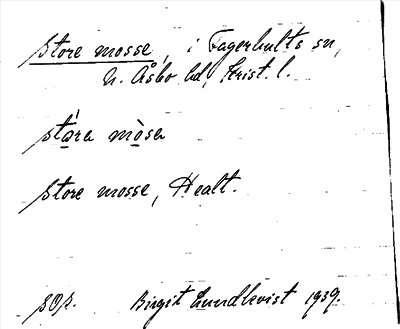 Store mosse, i Fagerhults sn,
N. Åsbo hd, Krist. l.
stóra mòsa
Store mosse, Healt.
SOp. Birgit Lundkvist 1939.